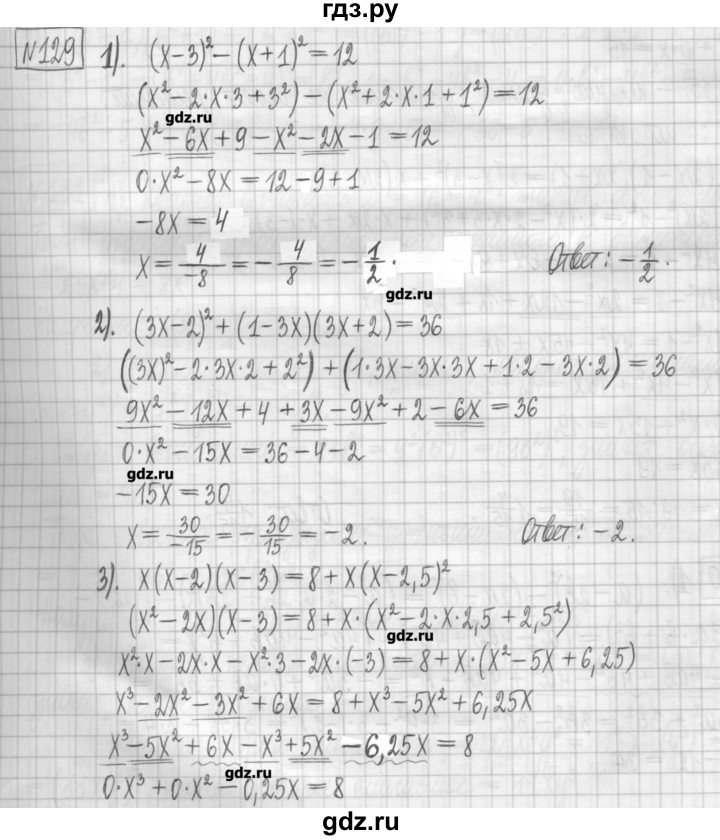 гдз.ру
№129 1). (x-3)²-(x+1)²=12
(x²-2·x·3+3²)-(x²+2·x·1+1²)=12
gdz.ru
x²-6x+9-x²-2x-1=12
0·x²-8x=12-9+1
-8x=4
x=4/-8=-4/8=-1/2. Ответ: -1/2.
gdz.ru
2). (3x-2)²+(1-3x)(3x+2)=36
((3x)²-2·3x·2+2²)+(1·3x-3x·3x+1·2-3x·2)=36
9x²-12x+4+3x-9x²+2-6x=36
0·x²-15x=36-4-2
gdz.ru
-15x=30
x=30/-15=-30/15=-2. Ответ: -2.
3). x(x-2)(x-3)=8+x(x-2,5)²
(x²-2x)(x-3)=8+x·(x²-2·x·2,5+2,5²)
gdz.ru
x²·x-2x·x-x²·3-2x·(-3)=8+x·(x²-5x+6,25)
x³-2x²-3x²+6x=8+x³-5x²+6,25x
x³-5x²+6x-x³+5x²-6,25x=8
gdz.ru
0·x³+0·x²-0,25x=8
gdz.ru